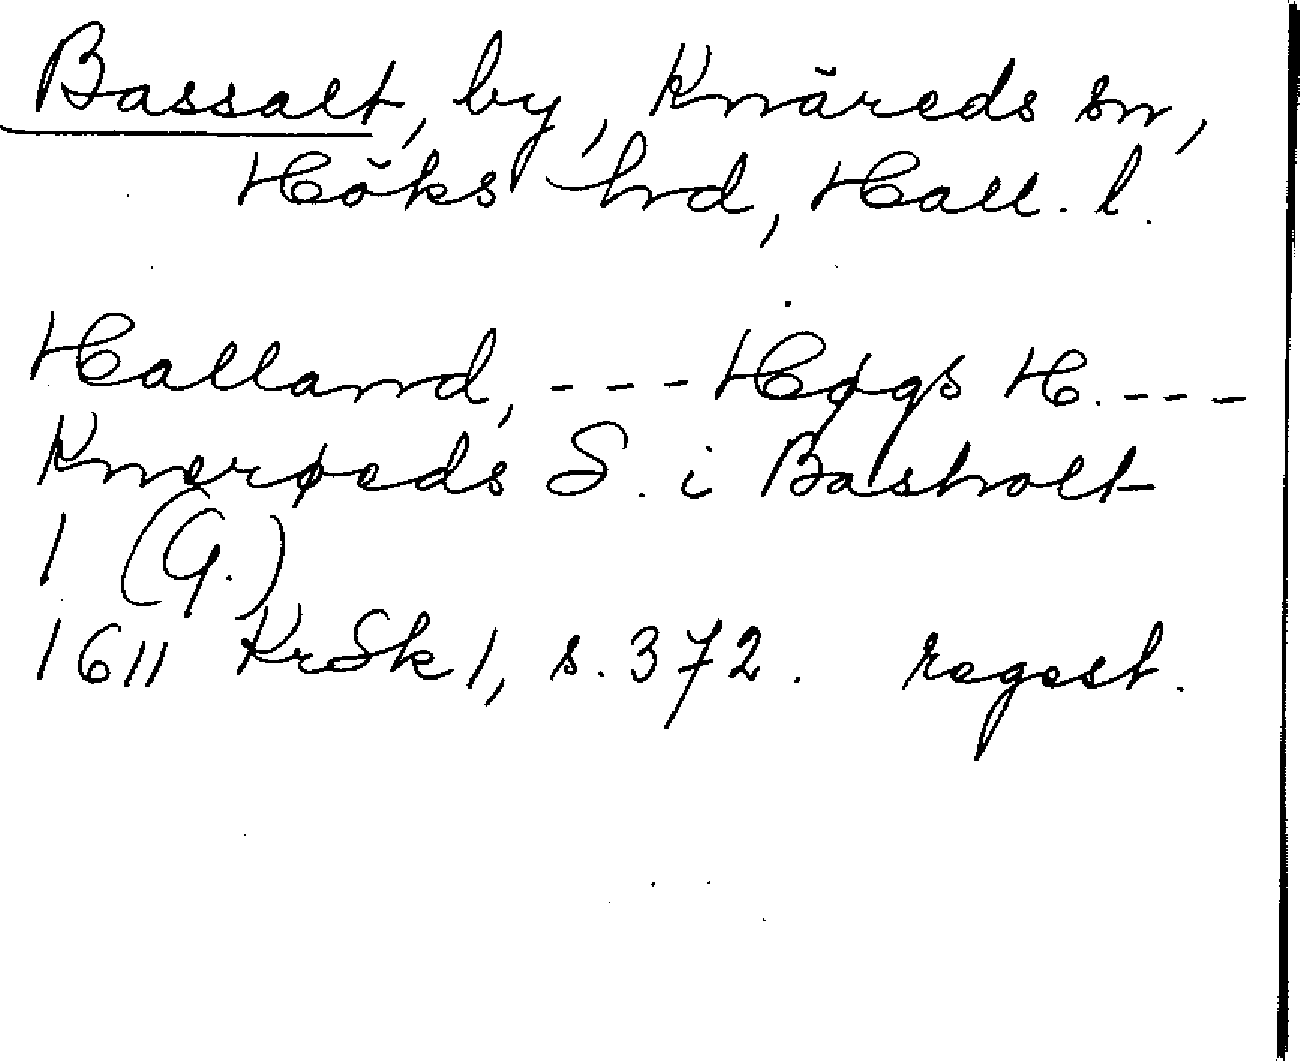 Bassalt, by, Knäreds sn,
Höks hrd, Hall. l.
Halland, --- Høgs H. ---
Knerøeds S. i Basholt
1 (G.)
1611 KrSk 1, s. 372. regest.